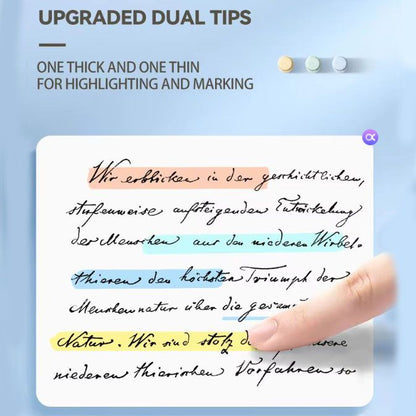 UPGRADED DUAL TIPS
ONE THICK AND ONE THIN
FOR HIGHLIGHTING AND MARKING
Wir erblicken in der geschichtlichen,
stufenweise aufsteigenden Entwickelung
der Menschen aus den niederen Wirbel-
thieren den höchsten Triumph der
Menschennatur über die
Natur. Wir sind stolz unsere
niederen thierischen Vorfahren so